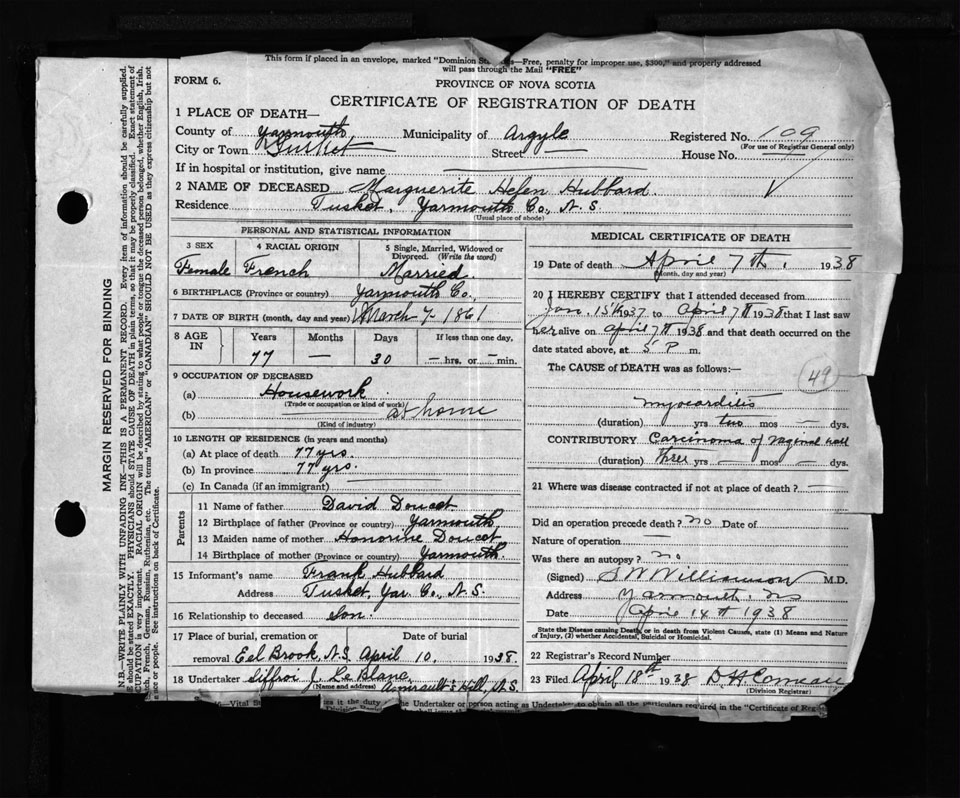 This form if placed in an envelope, marked "Dominion St—Free, penalty for improper use, $300," and properly addressed
will pass through the Mail "FREE"
FORM 6.
PROVINCE OF NOVA SCOTIA
CERTIFICATE OF REGISTRATION OF DEATH
1 PLACE OF DEATH—
County of Yarmouth Municipality of Argyle Registered No. 109
(For use of Registrar General only)
City or Town Tusket Street — House No. —
If in hospital or institution, give name
2 NAME OF DECEASED Marguerite Helen Hubbard.
Residence Tusket, Yarmouth Co., N. S.
(Usual place of abode)
PERSONAL AND STATISTICAL INFORMATION
3 SEX 4 RACIAL ORIGIN 5 Single, Married, Widowed or Divorced. (Write the word)
Female French Married
6 BIRTHPLACE (Province or country) Yarmouth Co.
7 DATE OF BIRTH (month, day and year) March 7- 1861
8 AGE IN Years Months Days If less than one day,
77 — 30 — hrs. or — min.
9 OCCUPATION OF DECEASED
(a) Housework
(Trade or occupation or kind of work)
(b) at home
(Kind of industry)
10 LENGTH OF RESIDENCE (in years and months)
(a) At place of death 77 yrs.
(b) In province 77 yrs.
(c) In Canada (if an immigrant)
Parents
11 Name of father David Doucet
12 Birthplace of father (Province or country) Yarmouth
13 Maiden name of mother Honorine Doucet
14 Birthplace of mother (Province or country) Yarmouth.
15 Informant's name Frank Hubbard
Address Tusket, Yar. Co., N. S.
16 Relationship to deceased Son.
17 Place of burial, cremation or Date of burial
removal Eel Brook, N.S. April 10, 1938.
18 Undertaker Siffroi J. Le Blanc
(Name and address) Amirault's Hill, N.S.
MEDICAL CERTIFICATE OF DEATH
19 Date of death April 7th, 1938
(Month, day and year)
20 I HEREBY CERTIFY that I attended deceased from
Jan. 15th 1937 to April 7th 1938 that I last saw
her alive on April 7th 1938 and that death occurred on
date stated above, at 5 P m.
The CAUSE of DEATH was as follows:—
49
Myocarditis
(duration) yrs two mos — dys.
CONTRIBUTORY Carcinoma of vaginal wall
(duration) Three yrs — mos — dys.
21 Where was disease contracted if not at place of death?
Did an operation precede death? no Date of
Nature of operation —
Was there an autopsy? no
(Signed) S W Williamson M.D.
Address Yarmouth, NS
Date April 14th 1938
State the Disease causing Death, or in death from Violent Causes, state (1) Means and Nature
of Injury, (2) whether Accidental, Suicidal or Homicidal.
22 Registrar's Record Number
23 Filed April 18th 1938 D H Comeau
(Division Registrar)
MARGIN RESERVED FOR BINDING
N.B.—WRITE PLAINLY WITH UNFADING INK—THIS IS A PERMANENT RECORD. Every item of information should be carefully supplied.
E should be stated EXACTLY. PHYSICIANS should STATE CAUSE OF DEATH in plain terms, so that it may be properly classified. Exact statement of
CUPATION is very important. RACIAL ORIGIN will be described by stating to what people or tongue the deceased person belonged, whether English, Irish,
ch, French, German, Russian, Ruthenian, etc. The terms "AMERICAN" or "CANADIAN" SHOULD NOT BE USED as they express citizenship but not
ce or people. See instructions on back of Certificate.
the Undertaker or person acting as Undertaker to obtain all the particulars required in the "Certificate of Reg